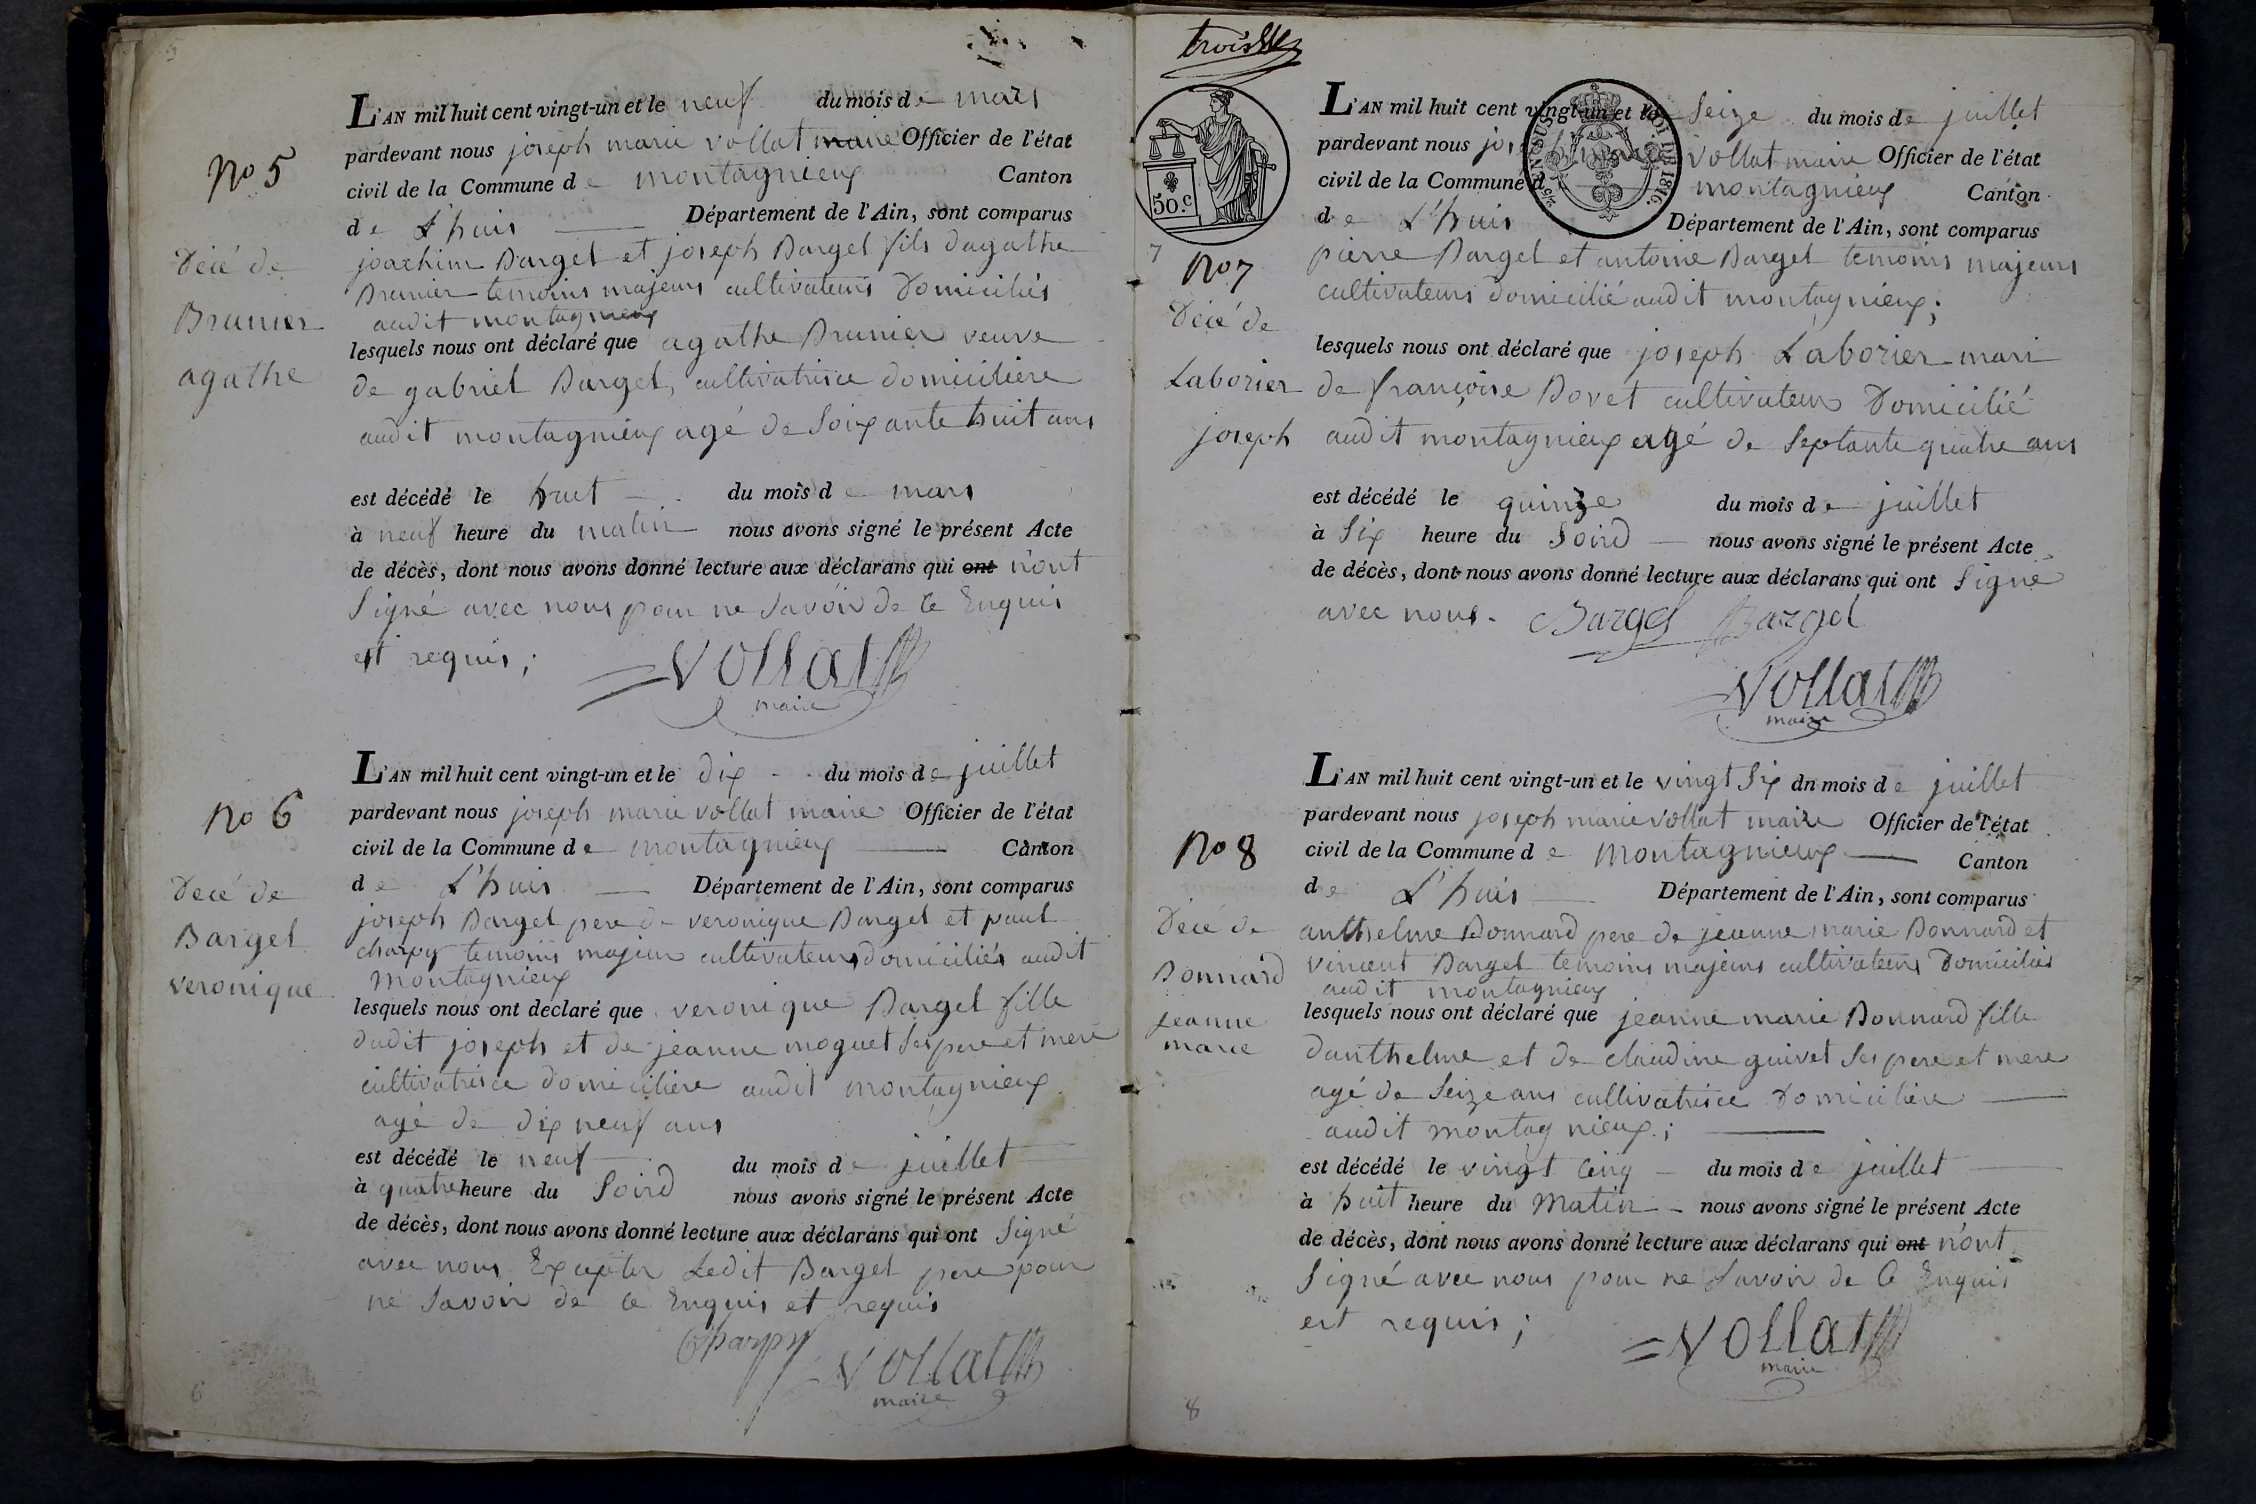 No 5
Décé de
Brunier
agathe
L'AN mil huit cent vingt-un et le neuf du mois de mars
pardevant nous joseph marie vollat maire Officier de l'état
civil de la Commune de montagnieux Canton
de L'huis Département de l'Ain, sont comparus
joachim Bargel et joseph Bargel fils dagathe
Brunier temoins majeurs cultivateurs Domiciliés
audit montagnieux
lesquels nous ont déclaré que agathe Brunier veuve
de gabriel Bargel, cultivatrice domiciliere
audit montagnieux agé de Soixante huit ans
est décédé le huit du mois de mars
à neuf heure du matin nous avons signé le présent Acte
de décès, dont nous avons donné lecture aux déclarans qui ont n'ont
Signé avec nous pour ne Savoir de Ce Enquis
et requis;
Vollat
maire
No 6
Décé de
Bargel
veronique
L'AN mil huit cent vingt-un et le dix du mois de juillet
pardevant nous joseph marie vollat maire Officier de l'état
civil de la Commune de montagnieux Canton
de L'huis Département de l'Ain, sont comparus
joseph Bargel pere de veronique Bargel et paul
charpy temoins majeur cultivateurs domiciliés audit
montagnieux
lesquels nous ont déclaré que veronique Bargel fille
dudit joseph et de jeanne moguet Ses pere et mere
cultivatrice domiciliere audit montagnieux
agé de dix neuf ans
est décédé le neuf du mois de juillet
à quatre heure du Soird nous avons signé le présent Acte
de décès, dont nous avons donné lecture aux déclarans qui ont Signé
avec nous Excepter Ledit Bargel pere pour
ne Savoir de Ce Enquis et requis
Charpy
Vollat
maire
6
troisse
50.c
7
No 7
Décé de
Laborier
joseph
L'AN mil huit cent vingt-un et le Seize du mois de juillet
pardevant nous joseph marie vollat maire Officier de l'état
civil de la Commune de montagnieux Canton
de L'huis Département de l'Ain, sont comparus
pierre Bargel et antoine Bargel temoins majeurs
cultivateurs domicilié audit montagnieux;
lesquels nous ont déclaré que joseph Laborier mari
de françoise Bovet cultivateur Domicilié
audit montagnieux agé de Septante quatre ans
est décédé le quinze du mois de juillet
à Six heure du Soird nous avons signé le présent Acte
de décès, dont nous avons donné lecture aux déclarans qui ont Signé
avec nous. Bargel Bargel
Vollat
maire
No 8
Décé de
Bonnard
jeanne
marie
L'AN mil huit cent vingt-un et le vingt Six dn mois de juillet
pardevant nous joseph marie vollat maire Officier de l'état
civil de la Commune de Montagnieux Canton
de L'huis Département de l'Ain, sont comparus
anthelme Bonnard pere de jeanne marie Bonnard et
vincent Bargel temoins majeurs cultivateurs Domiciliés
audit montagnieux
lesquels nous ont déclaré que jeanne marie Bonnard fille
danthelme et de claudine guivet Ses pere et mere
agé de Seize ans cultivatrice Domiciliere
audit montagnieux;
est décédé le vingt Cinq du mois de juillet
à huit heure du Matin nous avons signé le présent Acte
de décès, dont nous avons donné lecture aux déclarans qui ont n'ont
Signé avec nous pour ne Savoir de Ce Enquis
est requis;
Vollat
maire
8